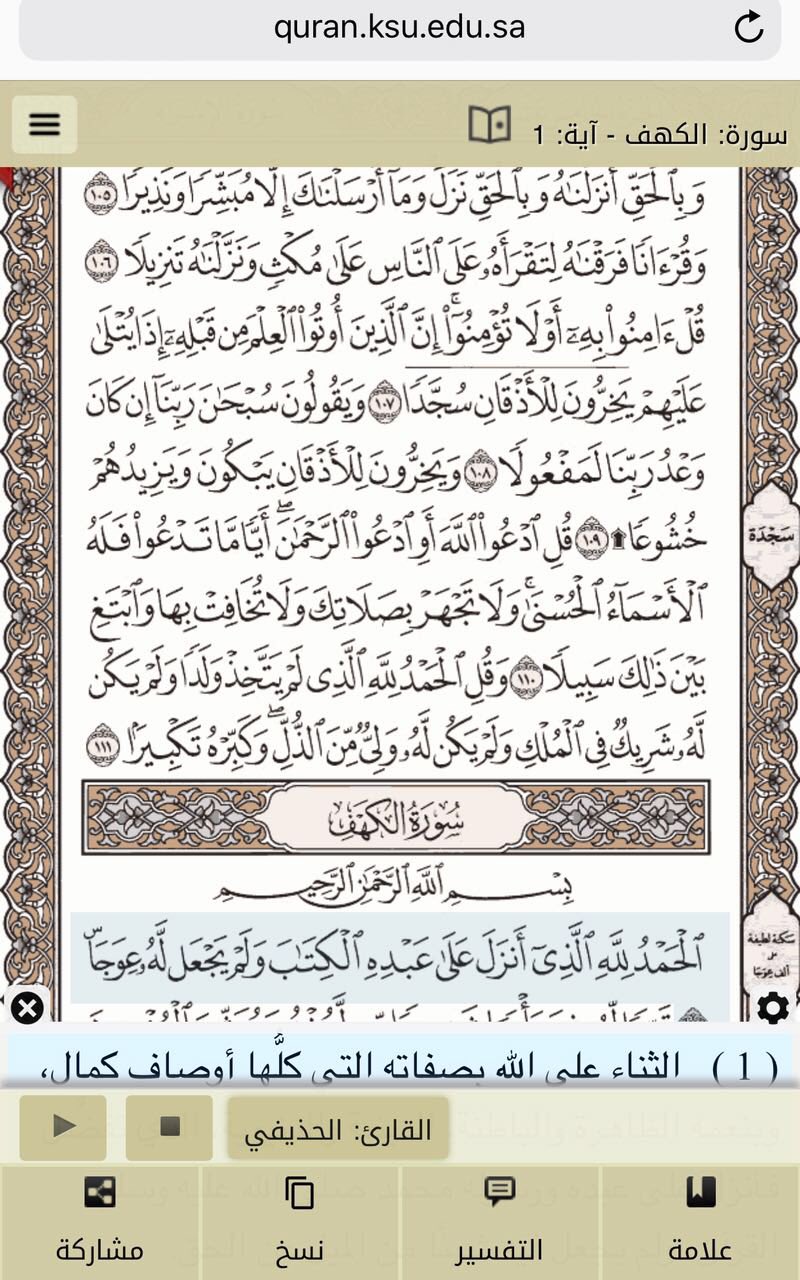 quran.ksu.edu.sa
سورة: الكهف - آية: 1
وَبِٱلۡحَقِّ أَنزَلۡنَٰهُ وَبِٱلۡحَقِّ نَزَلَۗ وَمَآ أَرۡسَلۡنَٰكَ إِلَّا مُبَشِّرٗا وَنَذِيرٗا ١٠٥
وَقُرۡءَانٗا فَرَقۡنَٰهُ لِتَقۡرَأَهُۥ عَلَى ٱلنَّاسِ عَلَىٰ مُكۡثٖ وَنَزَّلۡنَٰهُ تَنزِيلٗا ١٠٦
قُلۡ ءَامِنُواْ بِهِۦٓ أَوۡ لَا تُؤۡمِنُوٓاْۚ إِنَّ ٱلَّذِينَ أُوتُواْ ٱلۡعِلۡمَ مِن قَبۡلِهِۦٓ إِذَا يُتۡلَىٰ
عَلَيۡهِمۡ يَخِرُّونَ لِلۡأَذۡقَانِۤ سُجَّدٗاۤ ١٠٧ وَيَقُولُونَ سُبۡحَٰنَ رَبِّنَآ إِن كَانَ
وَعۡدُ رَبِّنَا لَمَفۡعُولٗا ١٠٨ وَيَخِرُّونَ لِلۡأَذۡقَانِ يَبۡكُونَ وَيَزِيدُهُمۡ
خُشُوعٗا ١٠٩ قُلِ ٱدۡعُواْ ٱللَّهَ أَوِ ٱدۡعُواْ ٱلرَّحۡمَٰنَۖ أَيّٗا مَّا تَدۡعُواْ فَلَهُ
سَجْدَة
ٱلۡأَسۡمَآءُ ٱلۡحُسۡنَىٰۚ وَلَا تَجۡهَرۡ بِصَلَاتِكَ وَلَا تُخَافِتۡ بِهَا وَٱبۡتَغِ
بَيۡنَ ذَٰلِكَ سَبِيلٗا ١١٠ وَقُلِ ٱلۡحَمۡدُ لِلَّهِ ٱلَّذِي لَمۡ يَتَّخِذۡ وَلَدٗا وَلَمۡ يَكُن
لَّهُۥ شَرِيكٞ فِي ٱلۡمُلۡكِ وَلَمۡ يَكُن لَّهُۥ وَلِيّٞ مِّنَ ٱلذُّلِّۖ وَكَبِّرۡهُ تَكۡبِيرَۢا ١١١
سُورَةُ الكَهۡفِ
بِسۡمِ ٱللَّهِ ٱلرَّحۡمَٰنِ ٱلرَّحِيمِ
ٱلۡحَمۡدُ لِلَّهِ ٱلَّذِيٓ أَنزَلَ عَلَىٰ عَبۡدِهِ ٱلۡكِتَٰبَ وَلَمۡ يَجۡعَل لَّهُۥ عِوَجَاۜ
سكتة لطيفة
على
ألف عوجا
( 1 ) الثناء على الله بصفاته التي كلُّها أوصاف كمال،
القارئ: الحذيفي
علامة
التفسير
نسخ
مشاركة